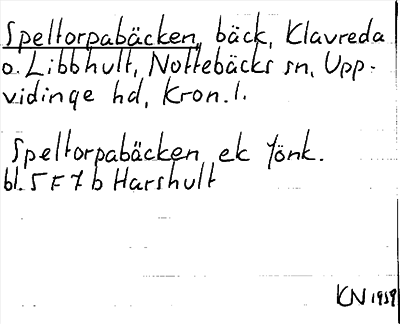 Speltorpabäcken, bäck, Klavreda
o. Libbhult, Nottebäcks sn, Upp-
vidinge hd, Kron. l.
Speltorpabäcken ek Jönk.
bl. 5 F 7 b Harshult
KN 1959